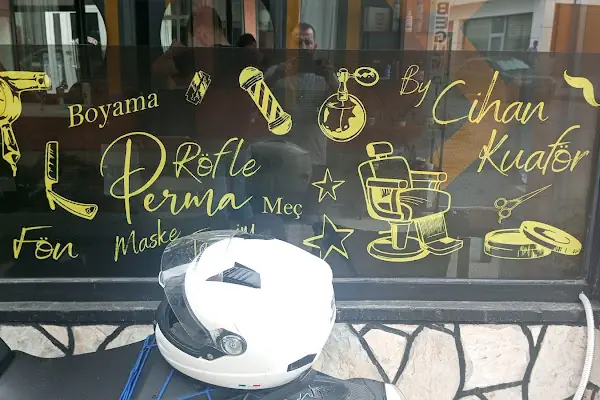 Boyama
Röfle
Perma
Meç
Fön
Maske
By Cihan
Kuaför